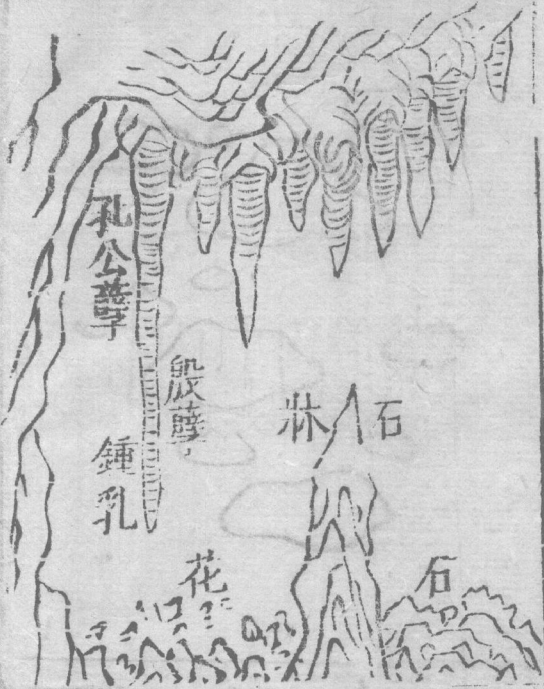 孔公孽
殷孽
鍾乳
石牀
石花